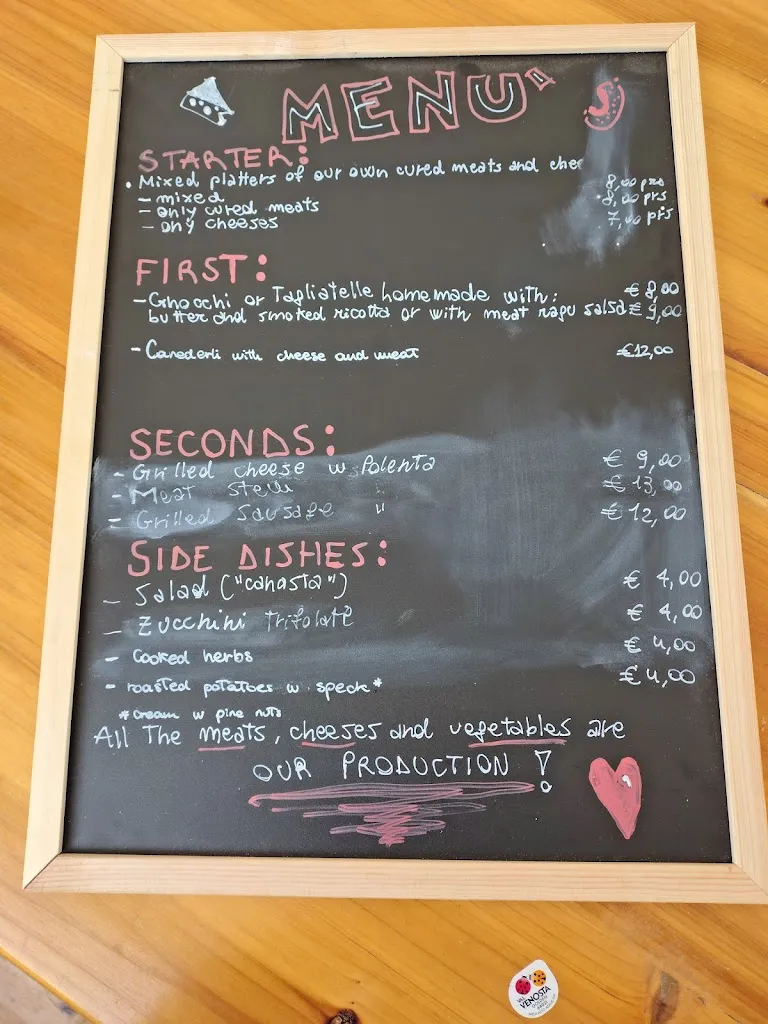 MENU
STARTER:
• Mixed platters of our own cured meats and chee
- mixed 8,00 prs
- only cured meats 8,00 prs
- ony cheeses 7,00 prs
FIRST:
- Gnocchi or Tagliatelle homemade with: € 8,00
butter and smoked ricotta or with meat ragu salsa € 9,00
- Canederli with cheese and meat €12,00
SECONDS:
- Grilled cheese w Polenta € 9,00
- Meat stew " € 13,00
- Grilled sausage " € 12,00
SIDE DISHES:
- Salad ("canasta") € 4,00
- Zucchini trifolate € 4,00
- Cooked herbs € 4,00
- roasted potatoes w speck* € 4,00
*cream w pine nuts
All The meats, cheeses and vegetables are
OUR PRODUCTION !
VAL
VENOSTA